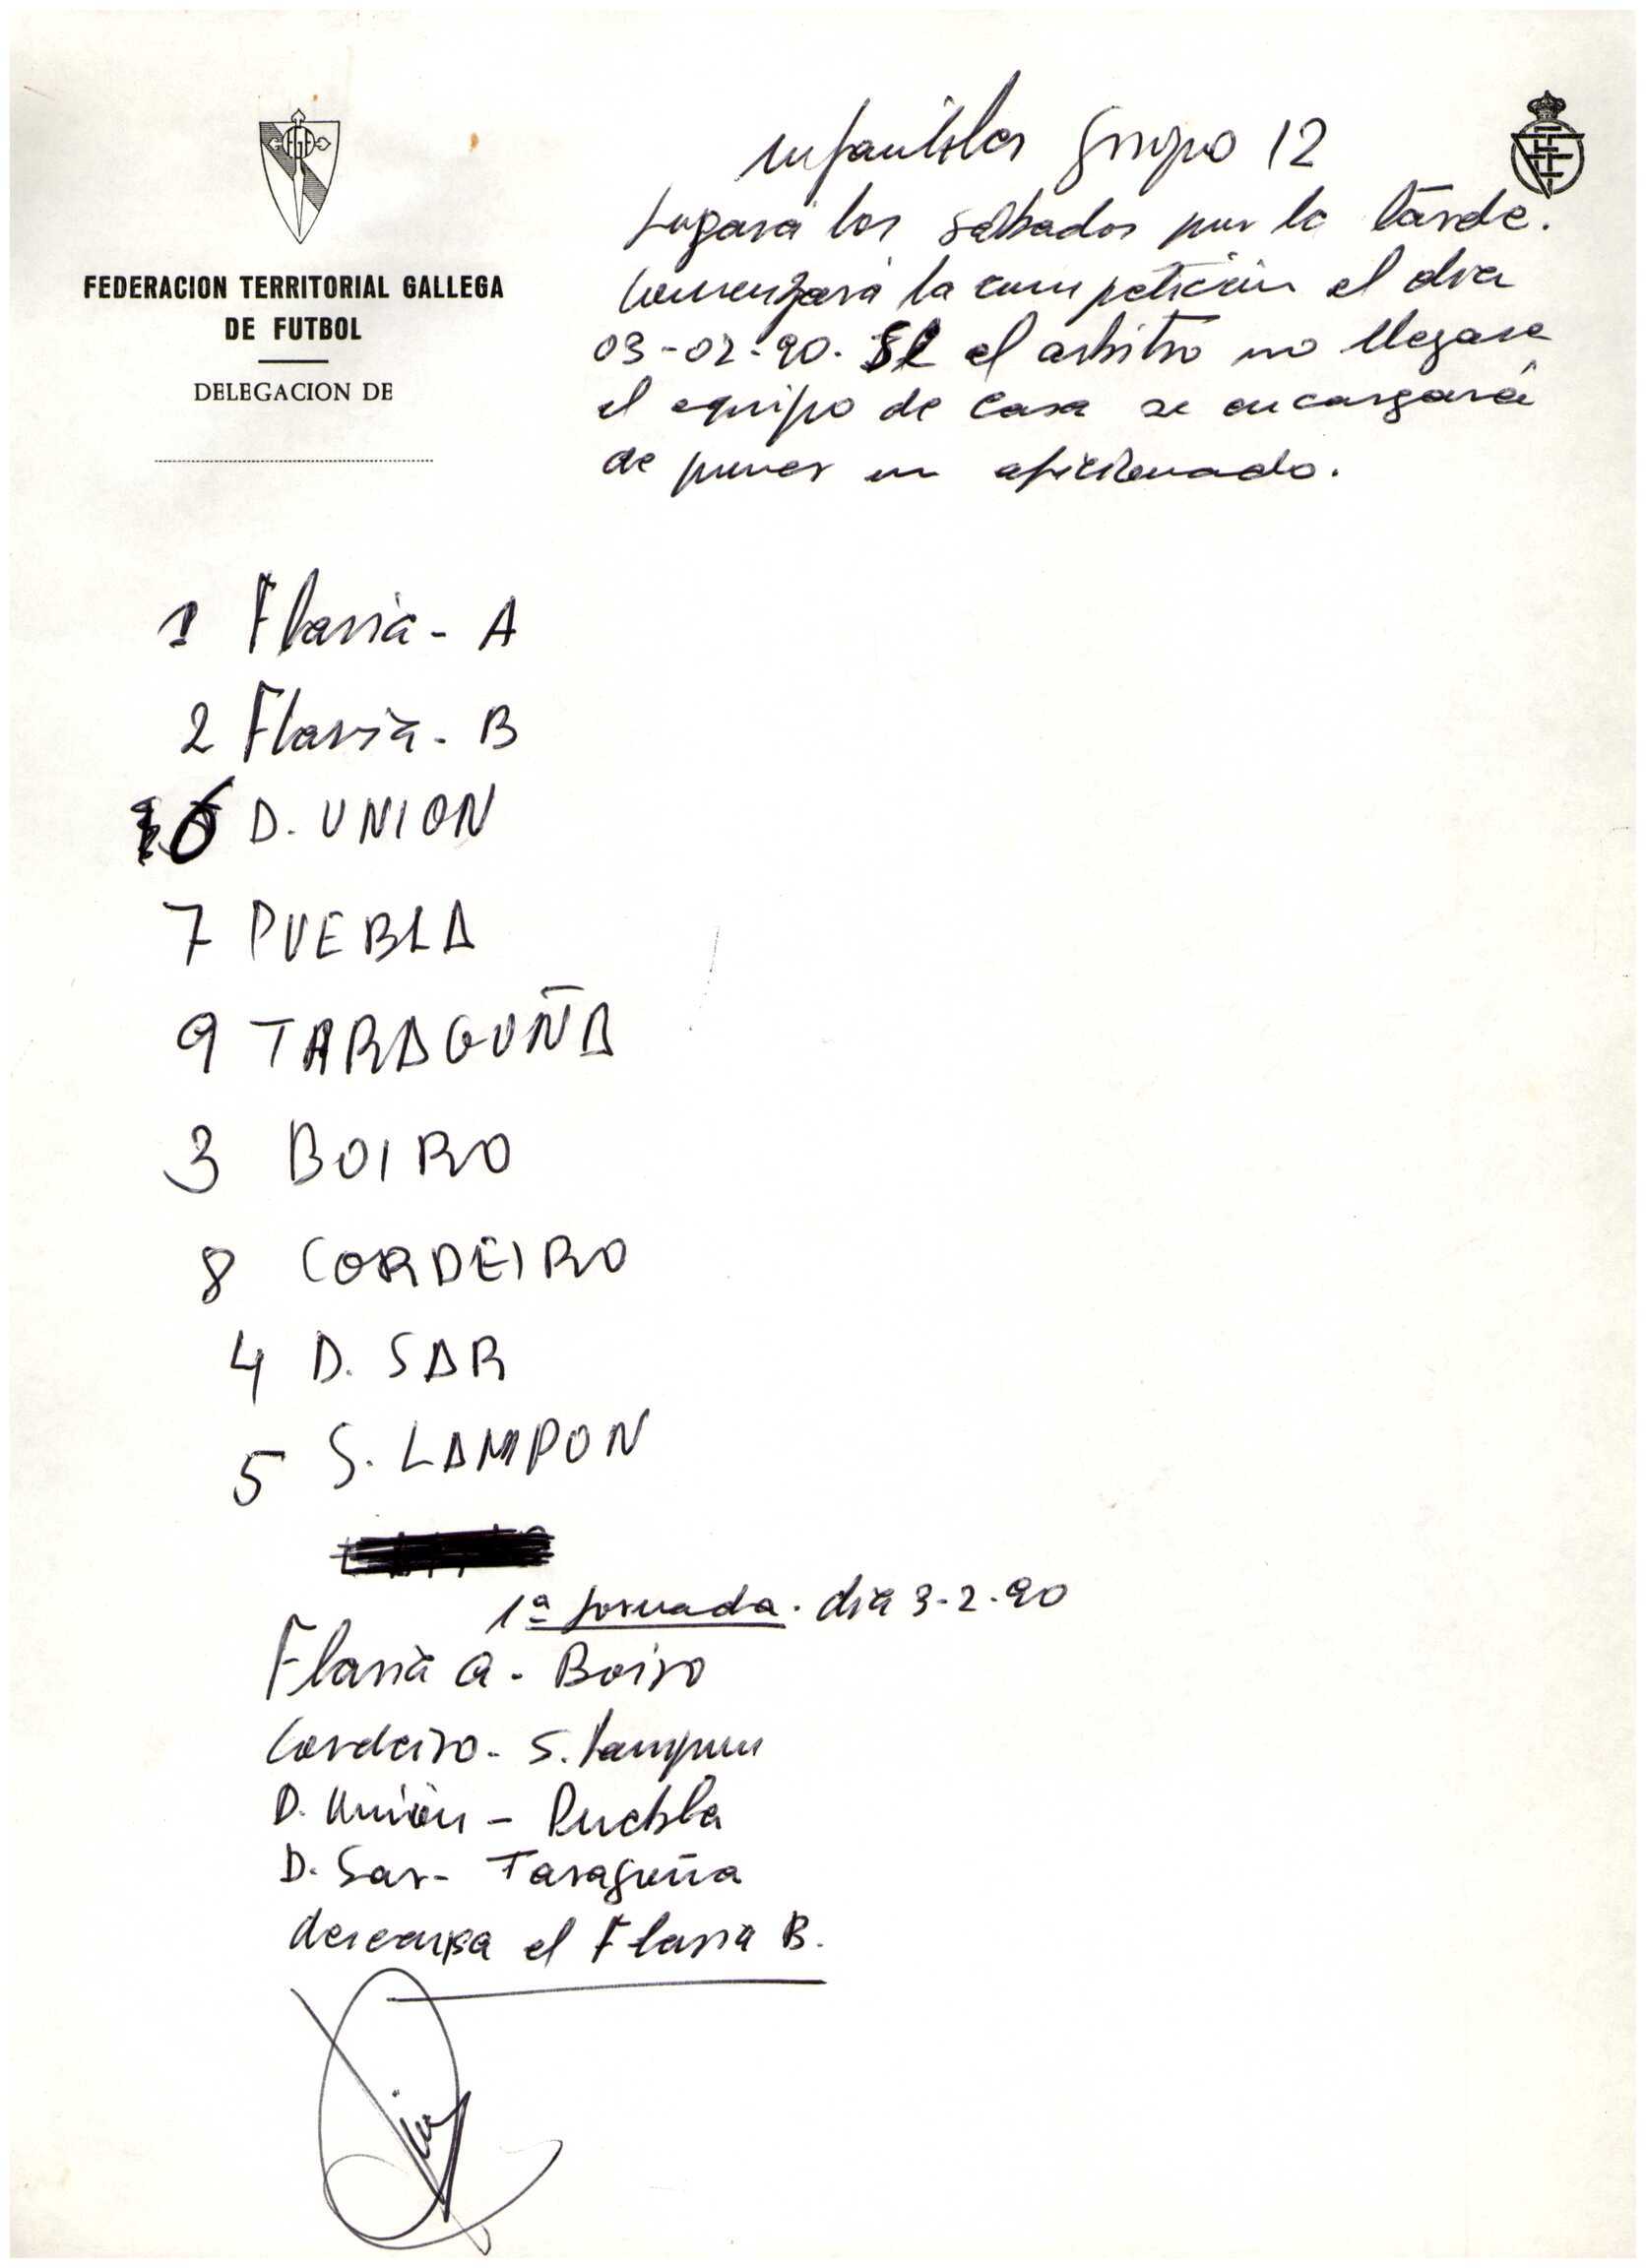 FEDERACION TERRITORIAL GALLEGA
DE FUTBOL
DELEGACION DE
Infantiles Grupo 12
Jugará los sábados por la tarde.
Comenzará la competición el dia
03-02-90. Si el arbitro no llegara
el equipo de casa se encargará
de poner un aficionado.
1 Flavia - A
2 Flavia - B
6 D. UNION
7 PUEBLA
9 TARAGOÑA
3 BOIRO
8 CORDEIRO
4 D. SAR
5 S. LAMPON
1ª Jornada. dia 3-2-90
Flavia A - Boiro
Cordeiro - S. Lampon
D. Unión - Puebla
D. Sar - Taragoña
descansa el Flavia B.